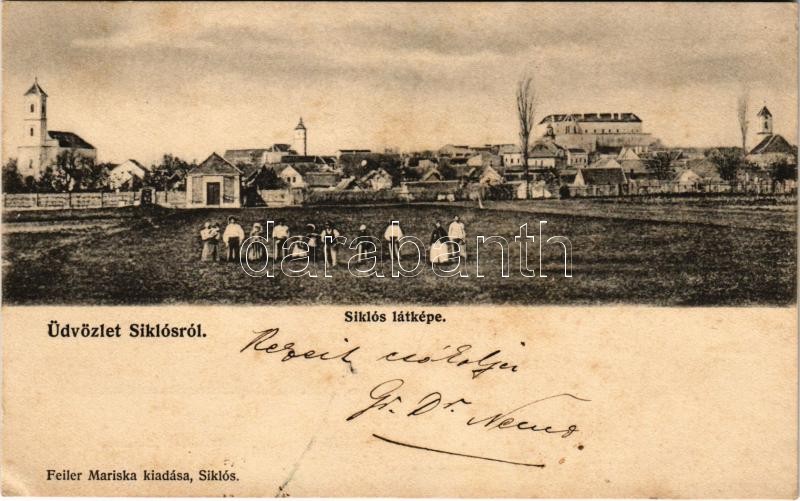 darabanth
Siklós látképe.
Üdvözlet Siklósról.
Kezeit csókolja
Gr. Dr.
Feiler Mariska kiadása, Siklós.